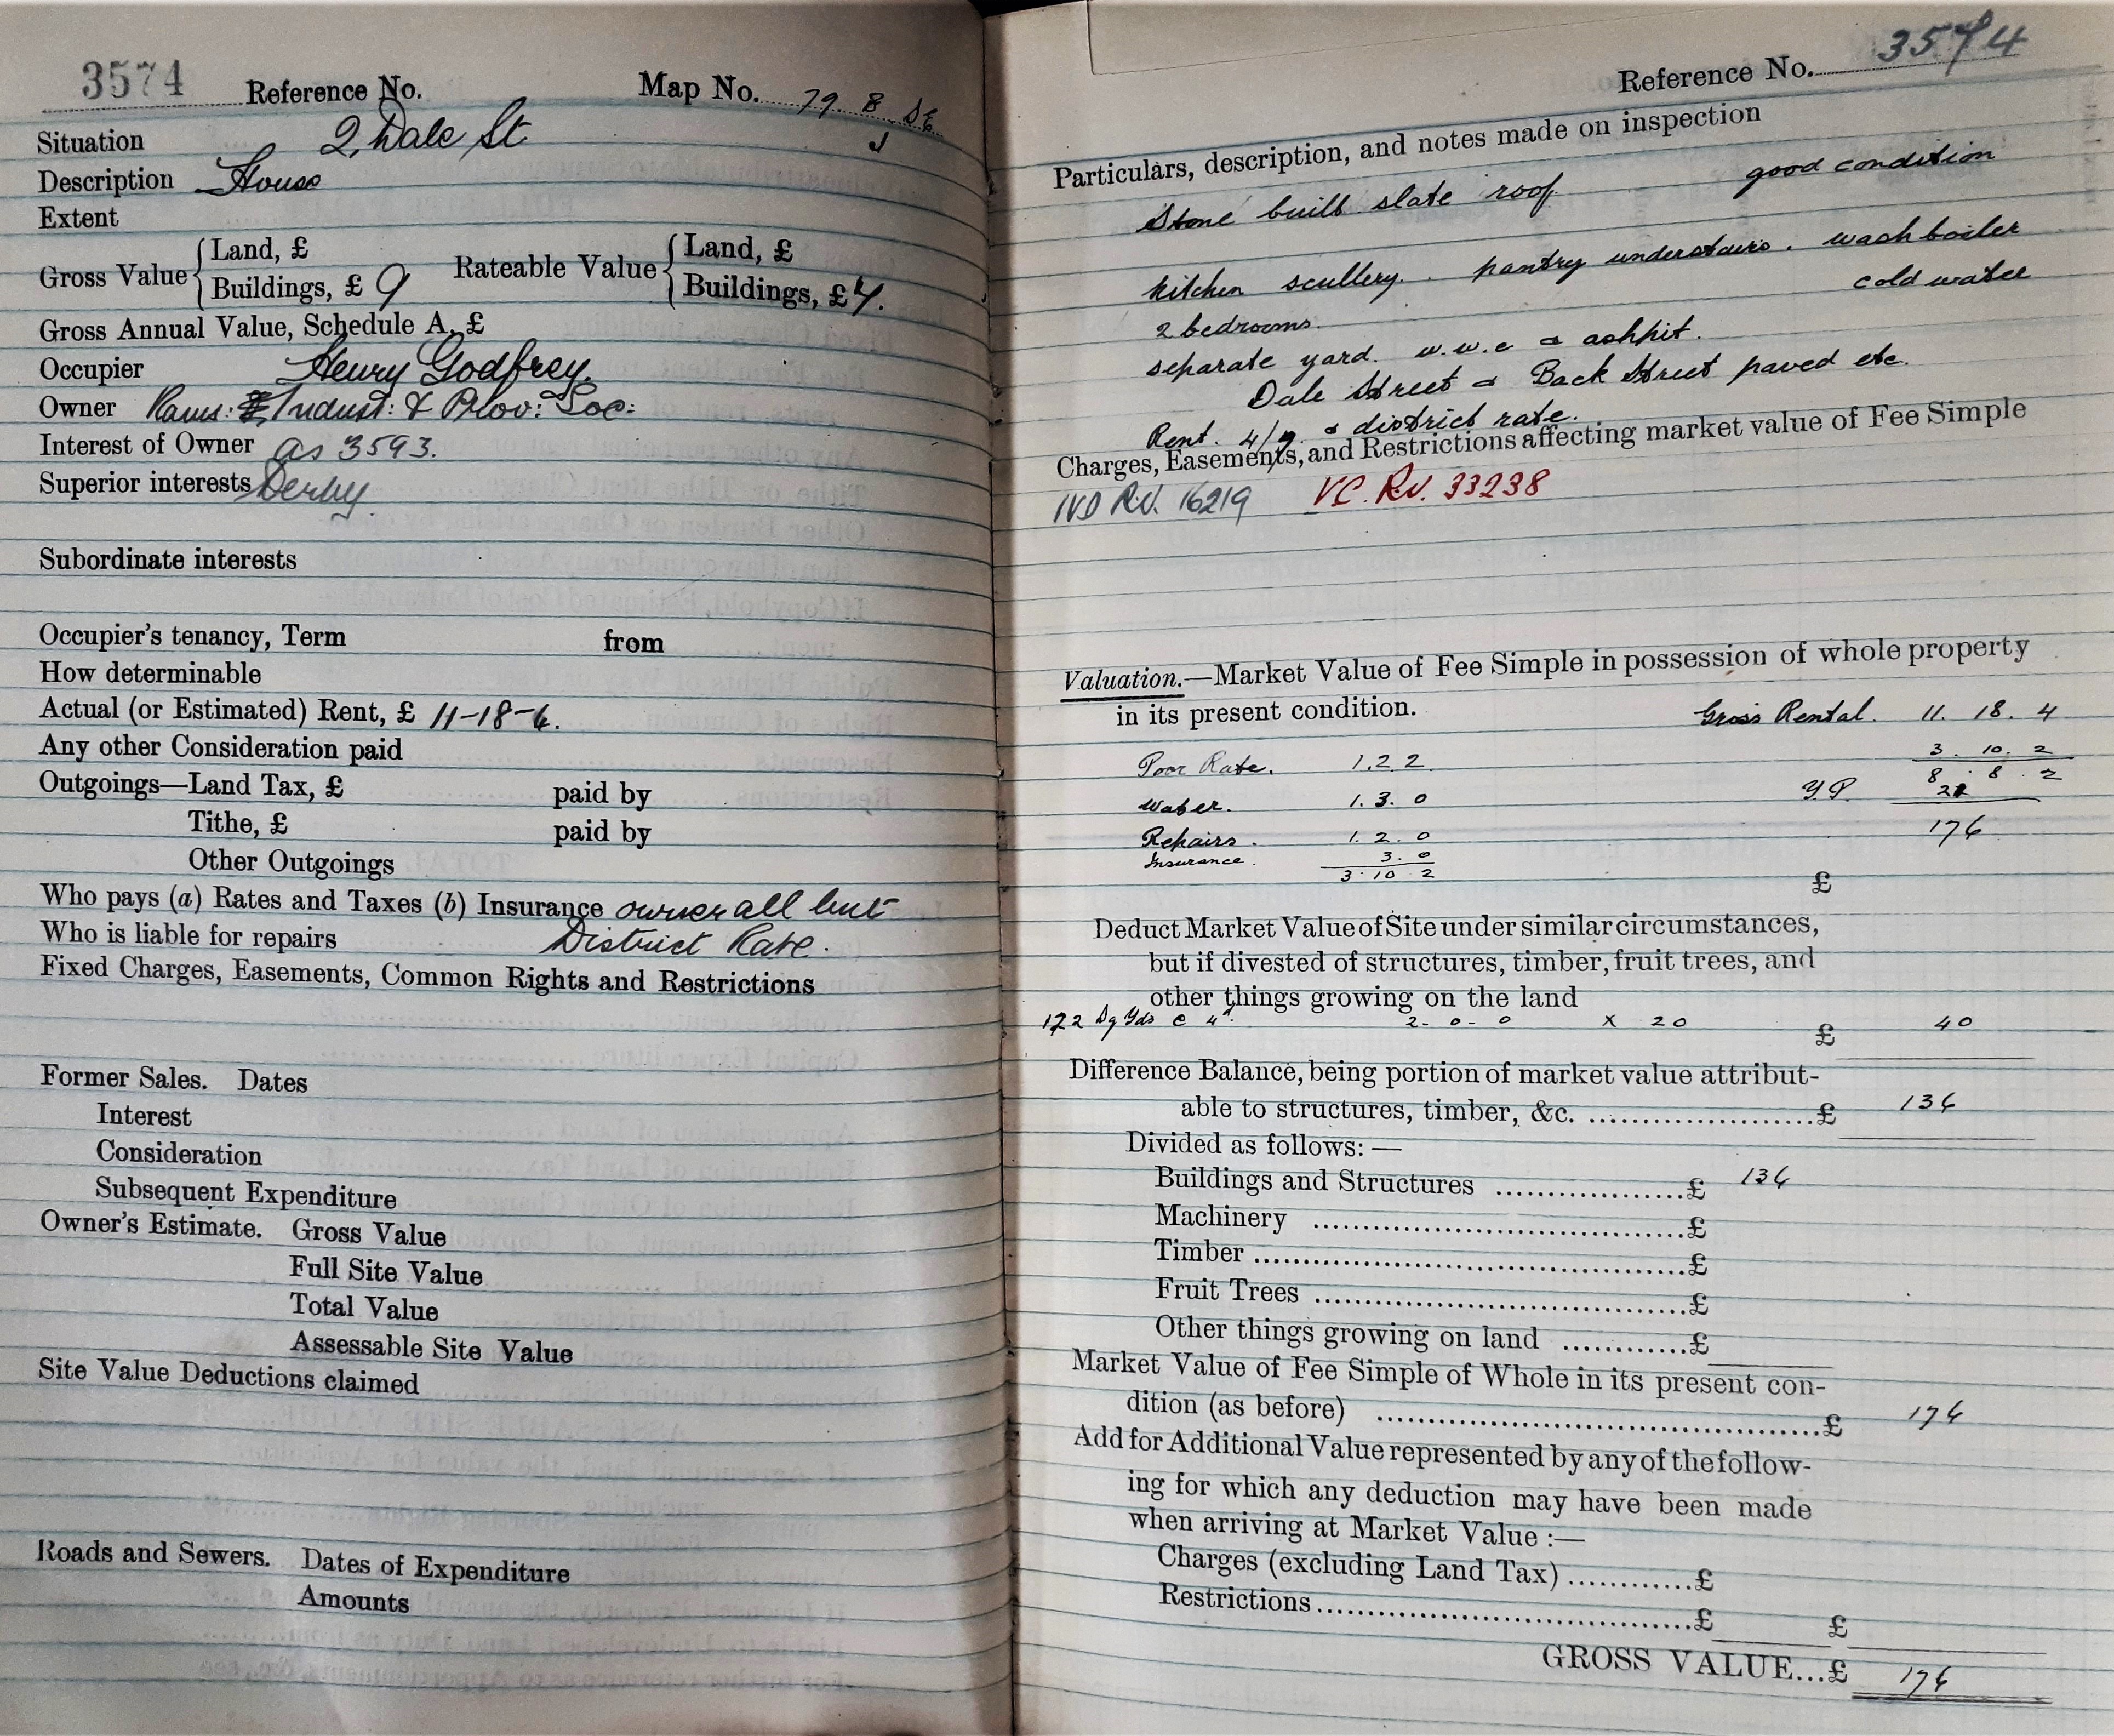 3574 Reference No. Map No. 79. 8 SE
Situation 2, Dale St
Description House
Extent
Gross Value { Land, £ Rateable Value { Land, £
Buildings, £ 9 Buildings, £ 7.
Gross Annual Value, Schedule A, £
Occupier Henry Godfrey.
Owner Rams: Indust: & Prov: Soc:
Interest of Owner as 3593.
Superior interests Derby
Subordinate interests
Occupier's tenancy, Term from
How determinable
Actual (or Estimated) Rent, £ 11-18-4.
Any other Consideration paid
Outgoings—Land Tax, £ paid by
Tithe, £ paid by
Other Outgoings
Who pays (a) Rates and Taxes (b) Insurance owner all but
Who is liable for repairs District Rate.
Fixed Charges, Easements, Common Rights and Restrictions
Former Sales. Dates
Interest
Consideration
Subsequent Expenditure
Owner's Estimate. Gross Value
Full Site Value
Total Value
Assessable Site Value
Site Value Deductions claimed
Roads and Sewers. Dates of Expenditure
Amounts
Reference No. 3574
Particulars, description, and notes made on inspection
Stone built slate roof good condition
kitchen scullery. pantry understairs. washboiler
cold water
2 bedrooms.
separate yard. w.w.c & ashpit.
Dale Street & Back Street paved etc.
Rent. 4/7 & district rate.
Charges, Easements, and Restrictions affecting market value of Fee Simple
IVD R.V. 16219 VC. RV. 33238
Valuation.—Market Value of Fee Simple in possession of whole property
in its present condition. Gross Rental. 11. 18. 4
Poor Rate. 1.2 2 3. 10. 2
8. 8. 2
Water. 1. 3. 0 Y.P. 21
Repairs. 1. 2. 0 176
Insurance. 3. 0
3. 10 2
£
Deduct Market Value of Site under similar circumstances,
but if divested of structures, timber, fruit trees, and
other things growing on the land
122 Sq Yds @ 4d. 2- 0- 0 X 20 £ 40
Difference Balance, being portion of market value attribut-
able to structures, timber, &c. ......................£ 136
Divided as follows:—
Buildings and Structures ..................£ 136
Machinery ..................£
Timber ..................£
Fruit Trees ..................£
Other things growing on land ............£
Market Value of Fee Simple of Whole in its present con-
dition (as before) ..................£ 176
Add for Additional Value represented by any of the follow-
ing for which any deduction may have been made
when arriving at Market Value :—
Charges (excluding Land Tax) ............£
Restrictions..................£ £
GROSS VALUE...£ 176